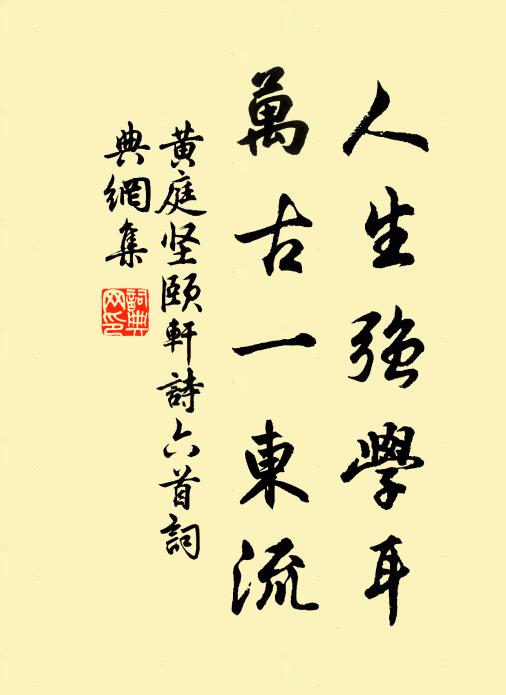 人生強學耳
萬古一東流
黃庭坚頤軒詩六首詞
典網集
詞典网印